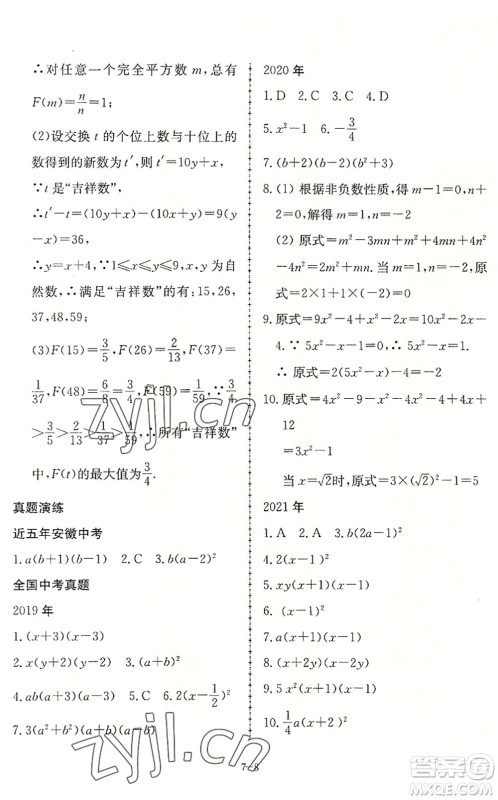 ∴对任意一个完全平方数 m，总有
F(m)=n/n=1；
(2)设交换 t 的个位上数与十位上的
数得到的新数为 t′，则 t′=10y+x，
∵t 是“吉祥数”，
∴t′-t=(10y+x)-(10x+y)=
9(y-x)=36，
∴y=x+4，∵1≤x≤y≤9，x，y 为自
然数，∴满足“吉祥数”的为：15，26，
37，48，59；
(3)F(15)=3/5，F(26)=2/13，F(37)=
1/37，F(48)=6/8=3/4，F(59)=1/59；∵3/4
>3/5>2/13>1/37>1/59，∴所有“吉祥数”
中，F(t)的最大值为3/4．
真题演练
近五年安徽中考
1.a(b+1)(b-1) 2.C 3.a(b-2)²
全国中考真题
2019 年
1.(x+3)(x-3) 2.D 3.(a+b)²
4.ab(a+b)(a-b) 5.C 6.2(x-1/2)²
7.3(a²+b²)(a+b)(a-b)
2020 年
1.D 2.C 3.C 4.D
5.x²-1 6.-3/4
7.(b+2)(b-2)(b²+4)
8.(1) 根据非负数性质，得 m-1=0，n
+2=0，解得 m=1，n=-2．
(2) 原式=m²-3mn+m²+4mn+4n²
-4n²=2m²+mn．当 m=1，n=-2 时，
原式=2×1+1×(-2)=0．
9. 原式=9x²-4+x²-2x=10x²-2x
-4．∵ 5x²-x-1=0，∴ 5x²-x=
1．∴ 原式=2(5x²-x)-4=-2．
10. 原式=4x²-9-4x+4x-x²+4x-4x+
12
=3x²-1
当 x=√2时，原式=3×(√2)²-1=5
2021 年
1.A 2.A 3.b(2a-1)²
4.2(x-1)²
5.xy(x+1)(x-1)
6.(x-1)²
7.a(x+1)(x-1)
8.(x+2y)(x-2y)
9.5x(x-1)²
10.1/4a(x+1)²
7-8
zyjl.cn
zyjl.cn
答案圈
MXQE.COM